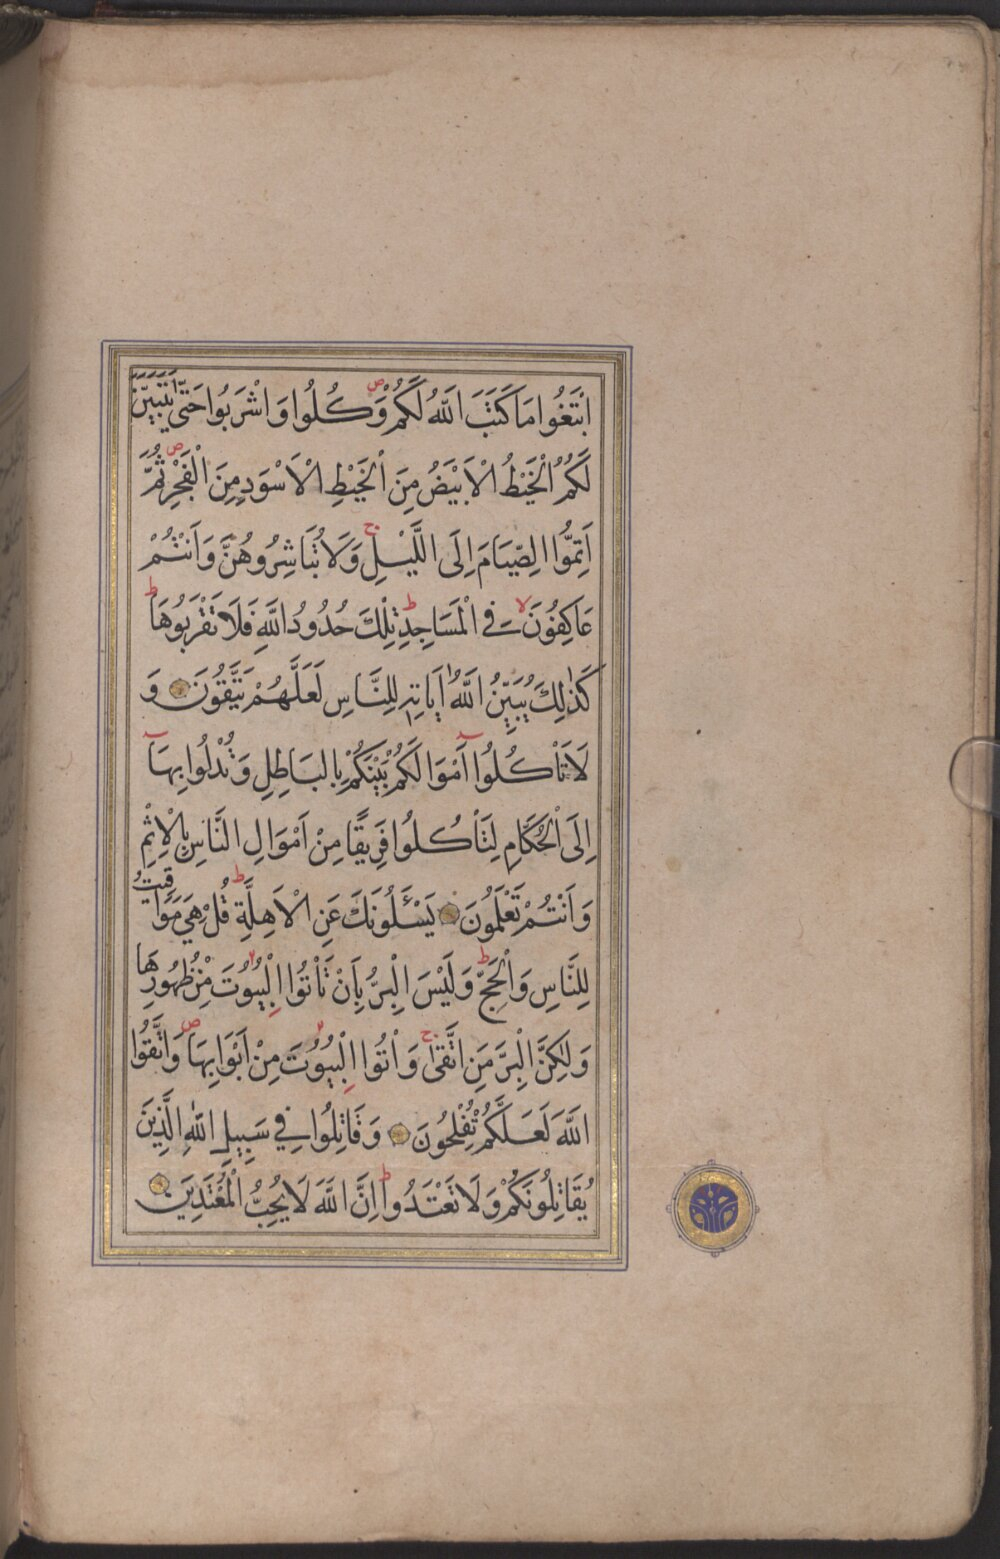 ابْتَغُوا مَا كَتَبَ اللّٰهُ لَكُمْ ص وَكُلُوا وَاشْرَبُوا حَتّٰى يَتَبَيَّنَ
لَكُمُ الْخَيْطُ الْاَبْيَضُ مِنَ الْخَيْطِ الْاَسْوَدِ مِنَ الْفَجْرِ ص ثُمَّ
اَتِمُّوا الصِّيَامَ اِلَى اللَّيْلِ ج وَلَا تُبَاشِرُوهُنَّ وَاَنْتُمْ
عَاكِفُونَ لا فِي الْمَسَاجِدِ ط تِلْكَ حُدُودُ اللّٰهِ فَلَا تَقْرَبُوهَا ط
كَذٰلِكَ يُبَيِّنُ اللّٰهُ اٰيَاتِهٖ لِلنَّاسِ لَعَلَّهُمْ يَتَّقُونَ وَ
لَا تَاْكُلُوٓا اَمْوَالَكُمْ بَيْنَكُمْ بِالْبَاطِلِ وَتُدْلُوا بِهَآ
اِلَى الْحُكَّامِ لِتَاْكُلُوا فَرِيقًا مِنْ اَمْوَالِ النَّاسِ بِالْاِثْمِ
وَاَنْتُمْ تَعْلَمُونَ يَسْـَٔلُونَكَ عَنِ الْاَهِلَّةِ ط قُلْ هِيَ مَوَاقِيتُ
لِلنَّاسِ وَالْحَجِّ ط وَلَيْسَ الْبِرُّ بِاَنْ تَاْتُوا الْبُيُوتَ مِنْ ظُهُورِهَا
وَلٰكِنَّ الْبِرَّ مَنِ اتَّقٰى ج وَاْتُوا الْبُيُوتَ مِنْ اَبْوَابِهَا ص وَاتَّقُوا
اللّٰهَ لَعَلَّكُمْ تُفْلِحُونَ وَقَاتِلُوا فِي سَبِيلِ اللّٰهِ الَّذِينَ
يُقَاتِلُونَكُمْ وَلَا تَعْتَدُوا ط اِنَّ اللّٰهَ لَا يُحِبُّ الْمُعْتَدِينَ